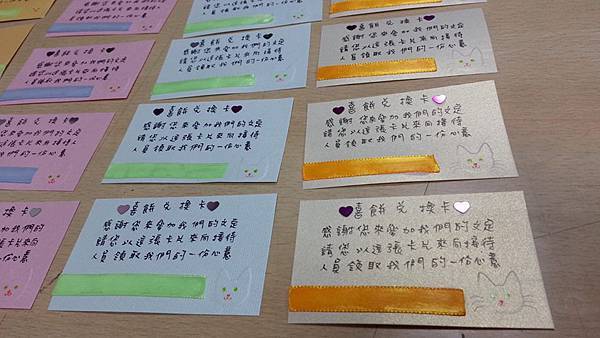 喜餅兌換卡
感謝您來參加我們的文定
請您以這張卡片來向接待
人員領取我們的一份心意
喜餅兌換卡
感謝您來參加我們的文定
請您以這張卡片來向接待
人員領取我們的一份心意
喜餅兌換卡
感謝您來參加我們的文定
請您以這張卡片來向接待
人員領取我們的一份心意
喜餅兌換卡
感謝您來參加我們的文定
請您以這張卡片來向接待
人員領取我們的一份心意
喜餅兌換卡
感謝您來參加我們的文定
請您以這張卡片來向接待
人員領取我們的一份心意
換卡
參加我們的
卡片來向
的一份心意
喜餅兌換卡
感謝您來參加我們的文定
請您以這張卡片來向接待
人員領取我們的一份心意
喜餅兌換卡
感謝您來參加我們的文定
請您以這張卡片來向接待
人員領取我們的一份心意